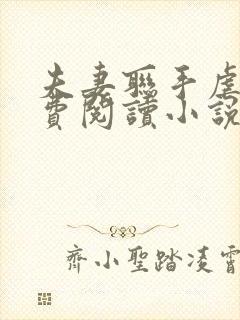 夫妻聯手虐
費閱讀小說
齊小聖踏凌霄